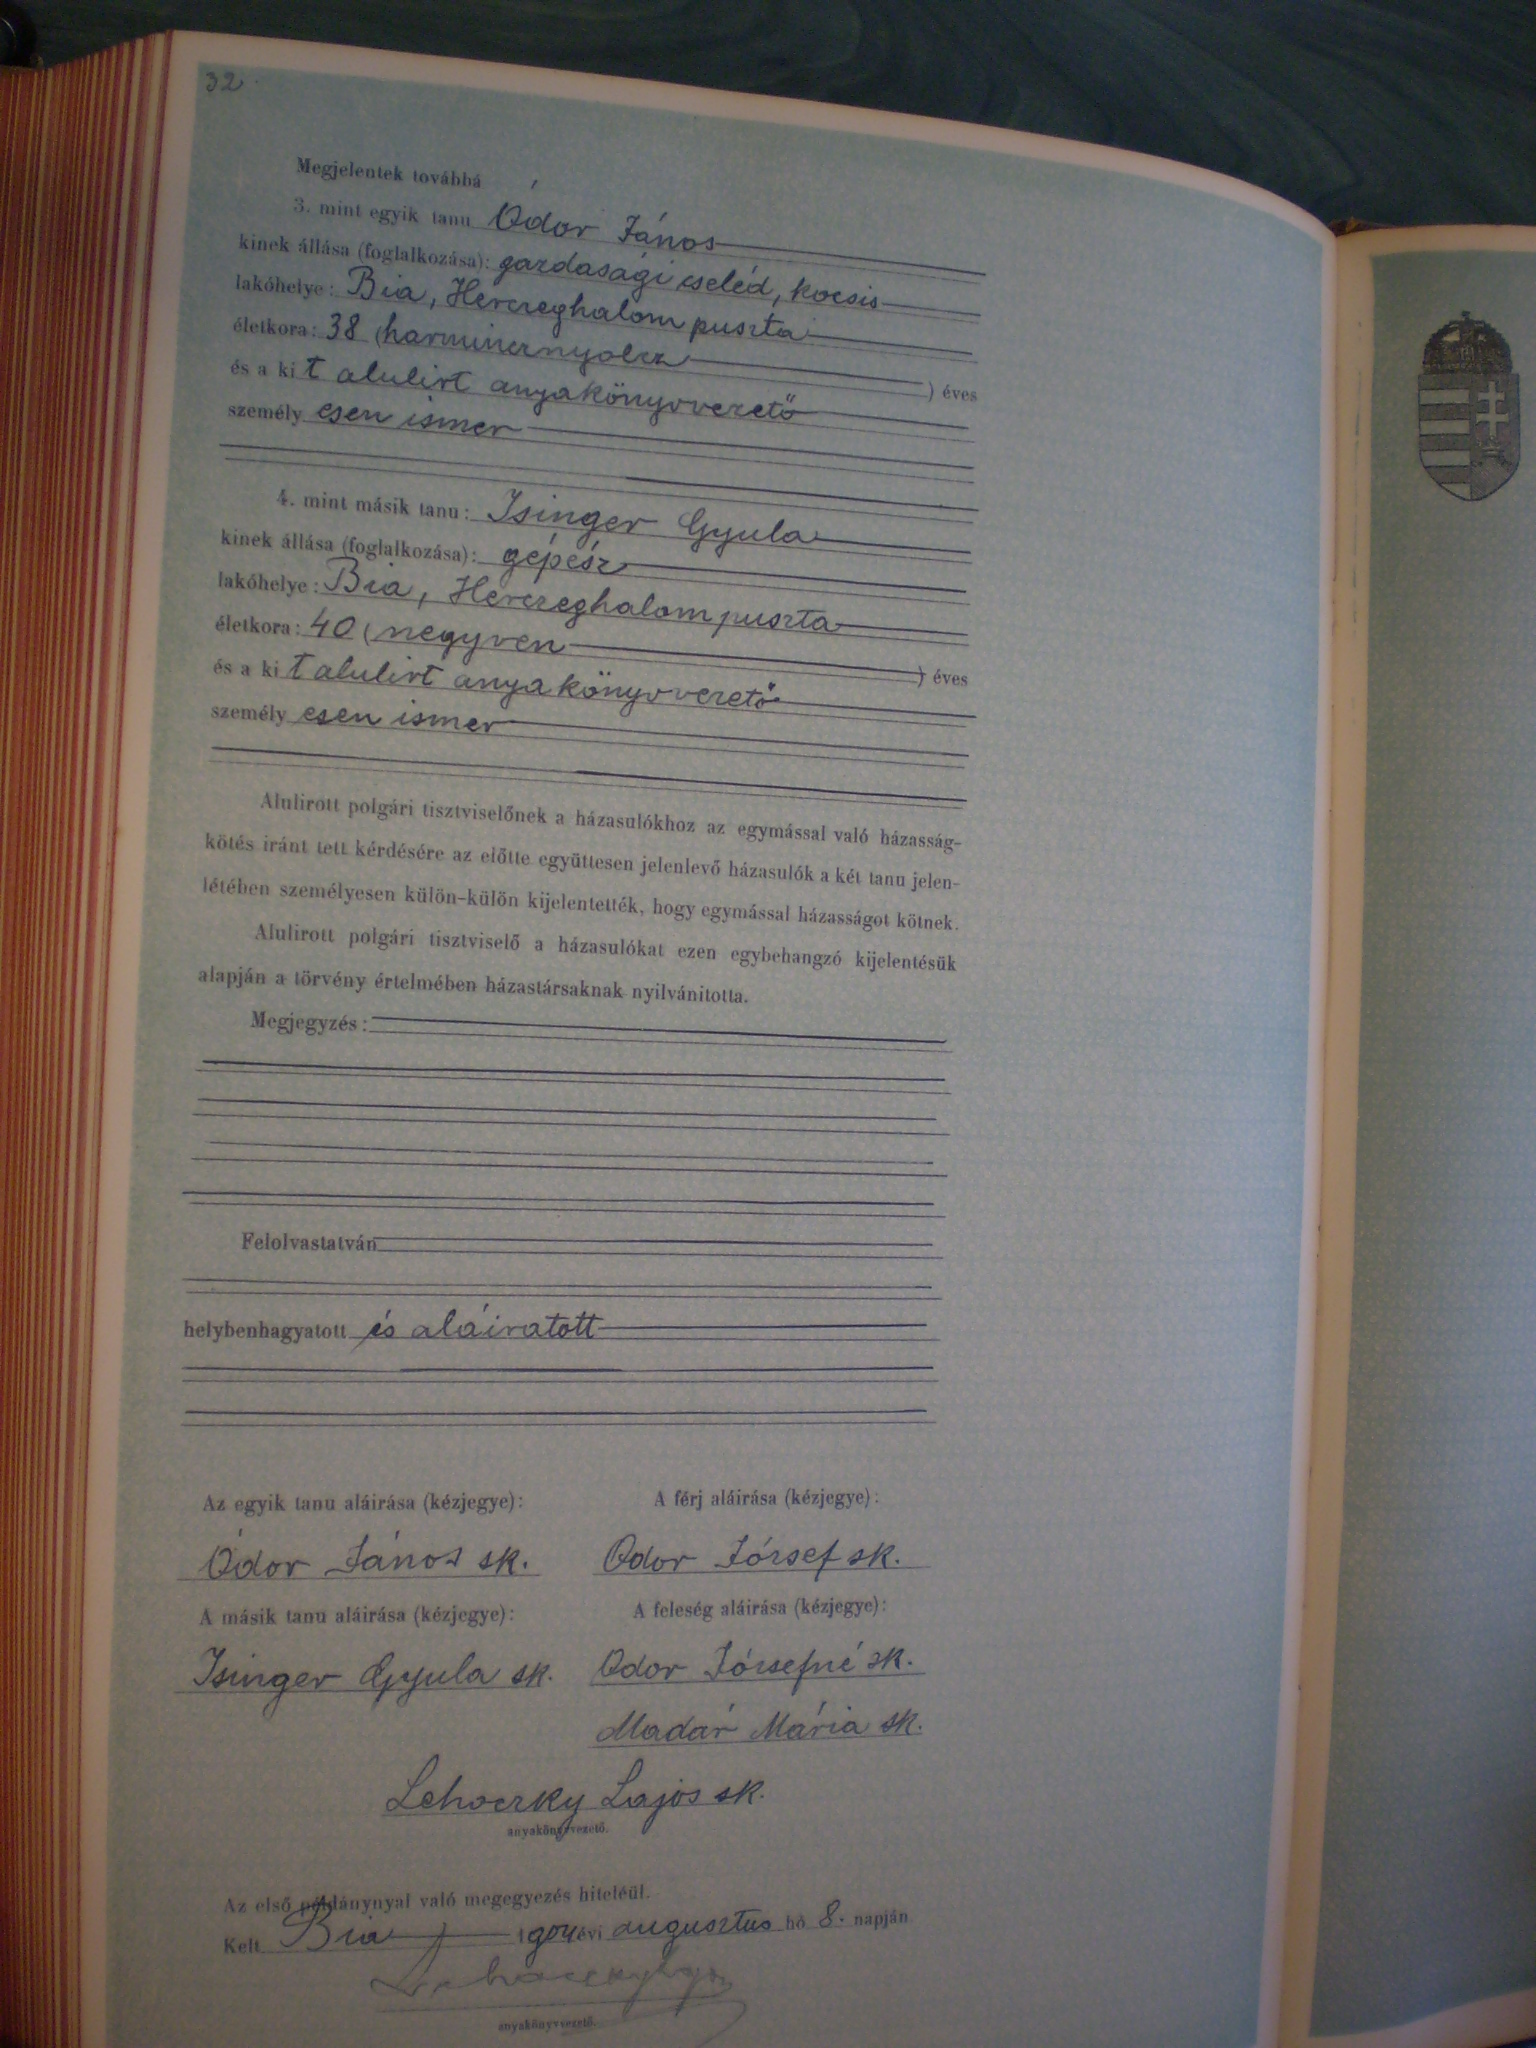 32.
Megjelentek továbbá
3. mint egyik tanu Ódor János
kinek állása (foglalkozása): gazdasági cseléd, kocsis
lakóhelye: Bia, Herczeghalom puszta
életkora: 38 (harmincznyolcz ) éves
és a kit alulirt anyakönyvvezető
személyesen ismer
4. mint másik tanu: Isinger Gyula
kinek állása (foglalkozása): gépész
lakóhelye: Bia, Herczeghalom puszta
életkora: 40 (negyven ) éves
és a kit alulirt anyakönyvvezető
személyesen ismer
Alulirott polgári tisztviselőnek a házasulókhoz az egymással való házasság-
kötés iránt tett kérdésére az előtte együttesen jelenlevő házasulók a két tanu jelen-
létében személyesen külön-külön kijelentették, hogy egymással házasságot kötnek.
Alulirott polgári tisztviselő a házasulókat ezen egybehangzó kijelentésük
alapján a törvény értelmében házastársaknak nyilvánitotta.
Megjegyzés:
Felolvastatván
helybenhagyatott és aláiratott
Az egyik tanu aláirása (kézjegye): A férj aláirása (kézjegye):
Ódor János sk. Odor József sk.
A másik tanu aláirása (kézjegye): A feleség aláirása (kézjegye):
Isinger Gyula sk. Odor Józsefné sk.
Madár Mária sk.
Lehoczky Lajos sk.
anyakönyvvezető.
Az első példánynyal való megegyezés hiteléül.
Kelt Bia 1904 évi augusztus hó 8. napján
Lehoczky Lajos
anyakönyvvezető.